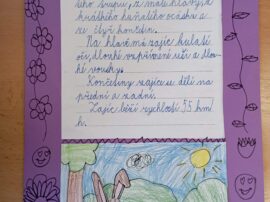 lého trupu, z malé hlavy, z
krátkého huňatého ocásku a
ze čtyř končetin.
Na hlavě má zajíc kulaté
oči, dlouhé vzpřímené uši a dlou-
hé vousky.
Končetiny zajíce se dělí na
přední a zadní.
Zajíc běží rychlostí 75 km/
h.